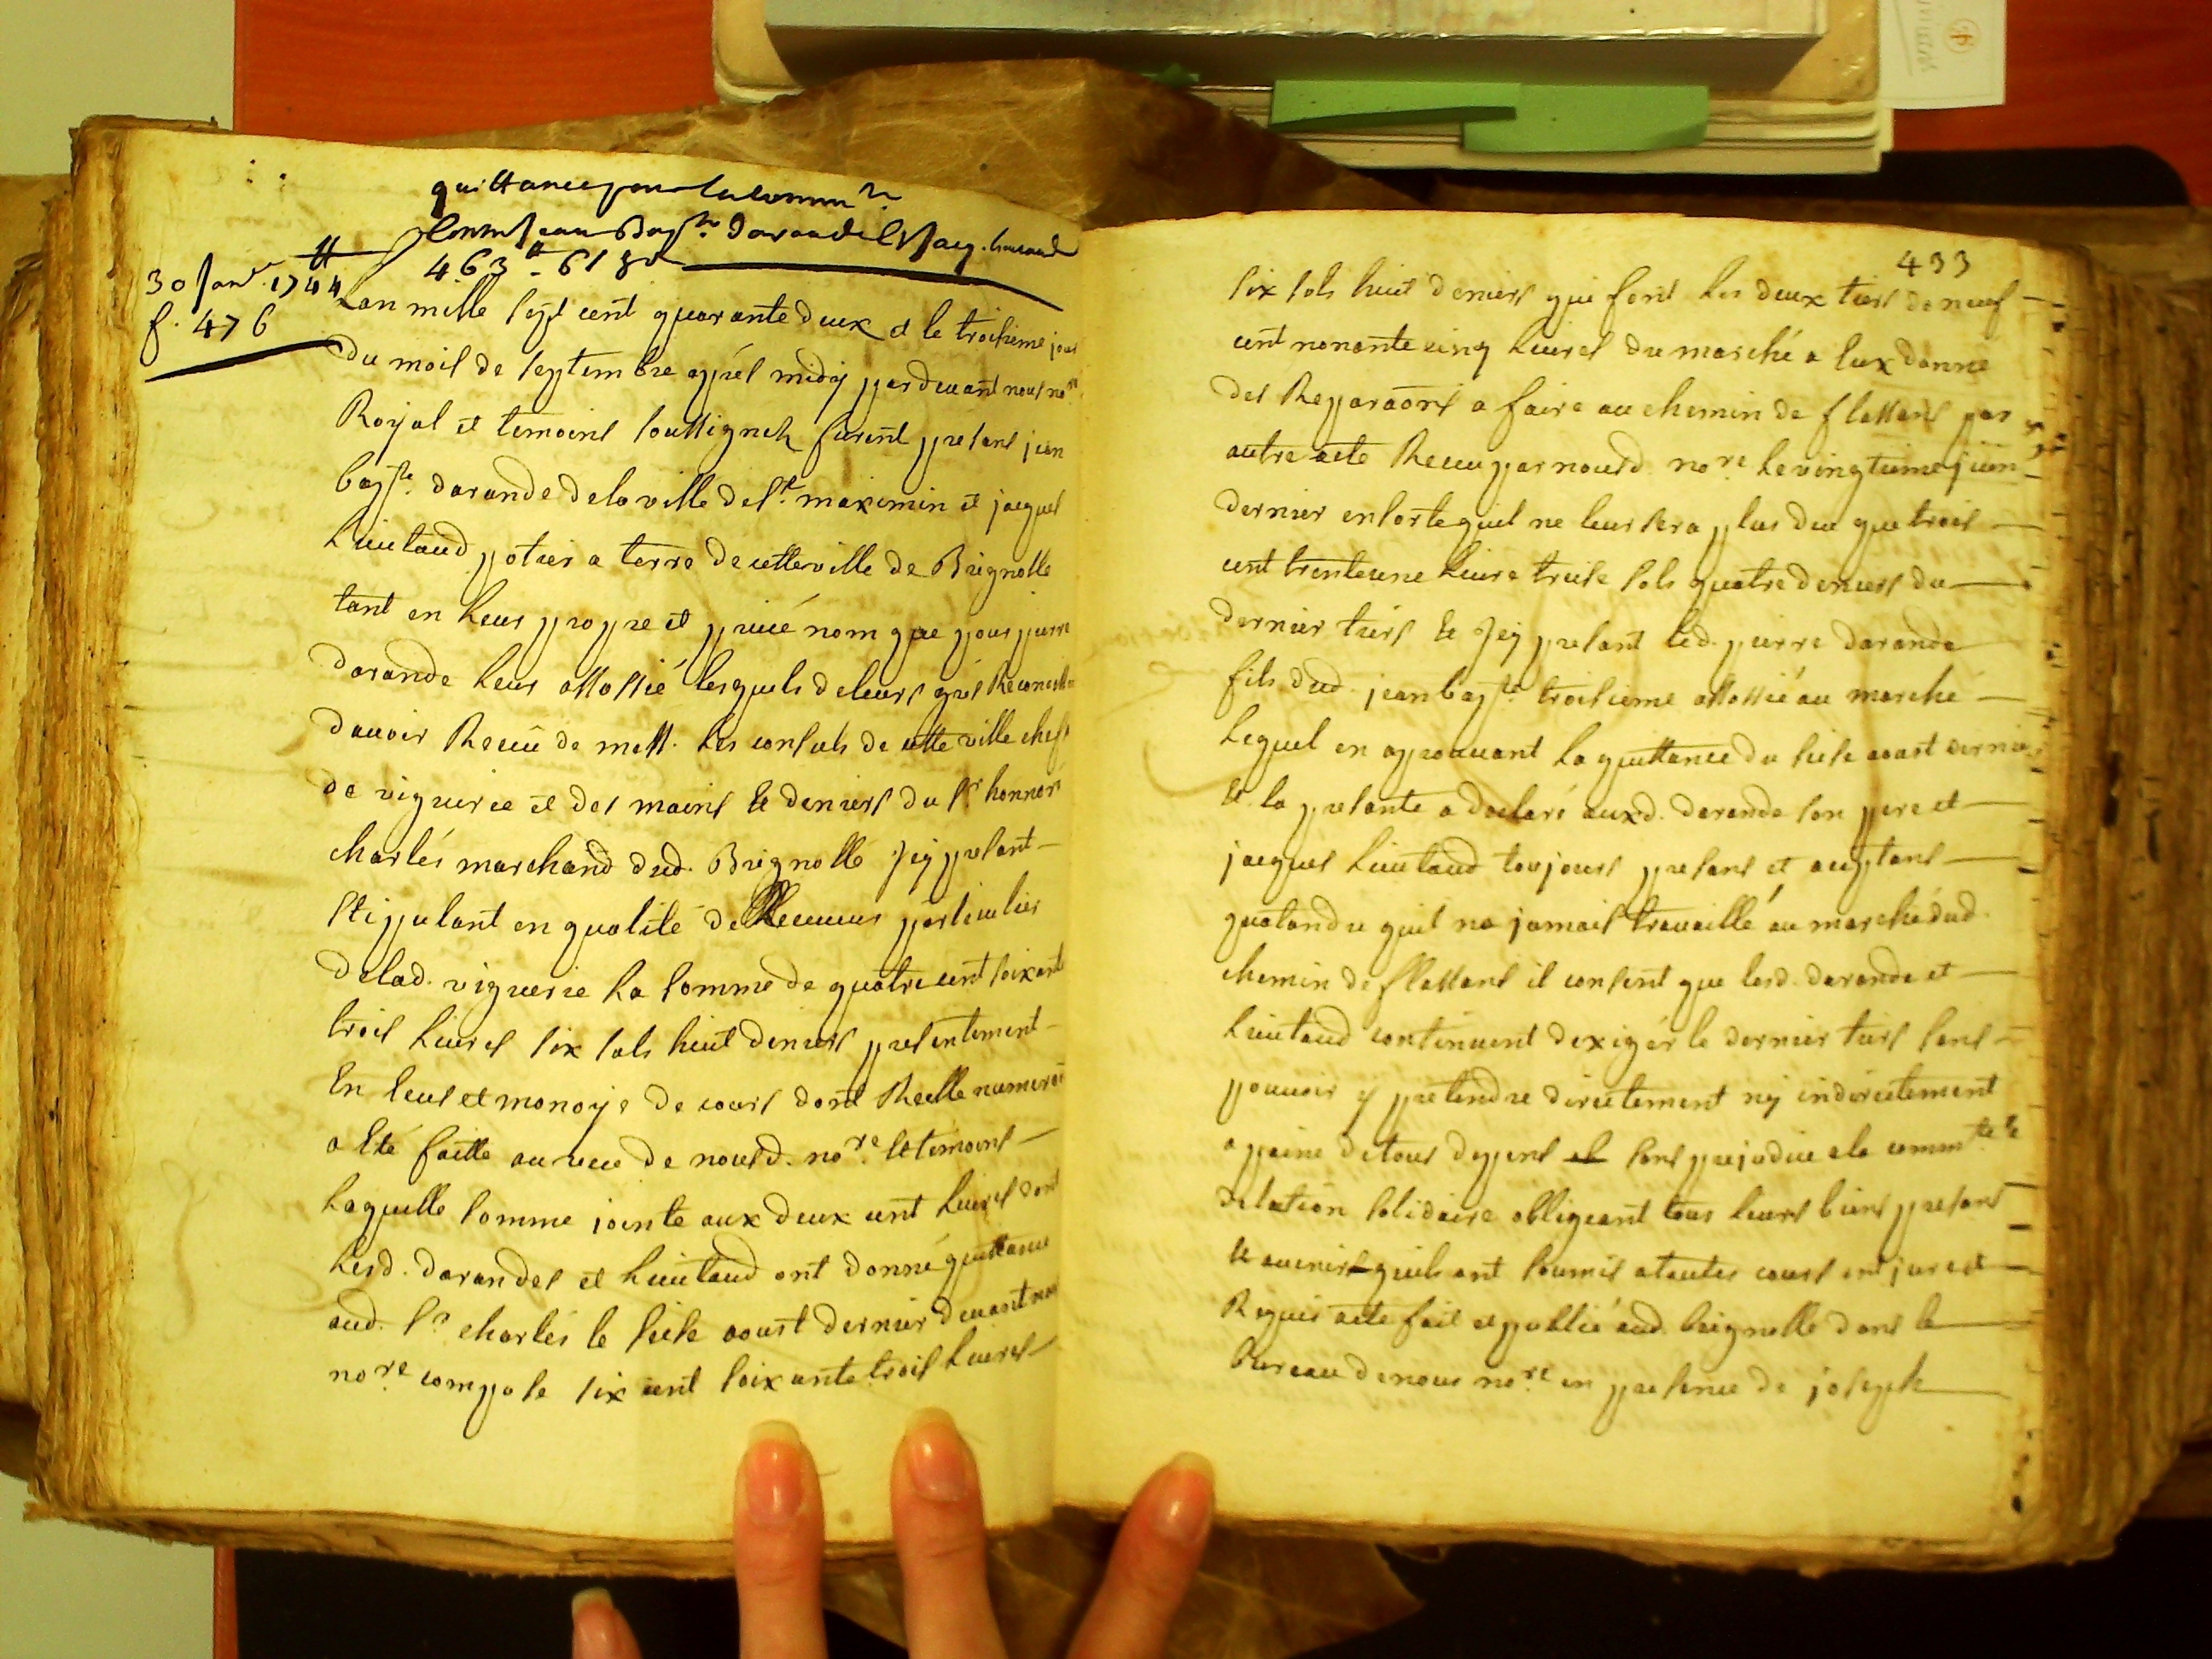 quittance pour la comm.té
Contre Jean Bap.te Darande et Jacq. Lieutaud
463 # 6 s 8 d
30 Janv. 1744
f. 476
Lan mille sept cent quarante deux et le troisieme jour
du mois de septembre aprés midy pardevant nous no.re
Royal et temoins soussignéz furent presans jean
bap.te darande de la ville de S.t maximin et jaques
Lieutaud potier a terre de cette ville de Brignolle
tant en leur propre et privé nom que pour pierre
darande leur assossié lesquels de leurs grés
davoir Receu de mess. les consuls de cette ville chef
de viguerie et des mains et deniers du s.r honnoré
charlés marchand dud. Brignolle Jcy presant
stipulant en qualité de Receveur particulier
de lad. viguerie la somme de quatre cent soixante
trois Livres six sols huit deniers presentement
En Ecus et monoye de cours dont Reelle numeraon
a Eté faitte au veue de nousd. no.re et temoins
Laquelle somme jointe aux deux cent Livres dont
Lesd. darandes et Lieutaud ont donné quittance
aud. s.r charlés le seise aoust dernier devant nous
no.re compose six cent soixante trois Livres
433
six sols huit deniers qui font les deux tiers de neuf
cent nonante cinq Livres du marché a eux donne
des Reparaons a faire au chemin de flassans par
autre acte Receu par nousd. no.re le vingtieme juin
dernier en sorte quil ne leur sera plus due que trois
cent trente une Livre treise sols quatre deniers du
dernier tiers Et Jcy presant led. pierre darande
fils dud. jean bap.te troisieme assossié au marché
Lequel en aprouvant la quittance du seise aoust dernier
Et la presante a declaré auxd. darande son pere et
jaques Lieutaud toujours presans et aceptans
quatandu quil na jamais travaillé au marché dud.
chemin de flassans il consent que lesd. darande et
Lieutaud continuent dexigér le dernier tiers sans
pouvoir y pretendre directement ny indirectement
a paine de tous depens et sans prejudice a la comm.té de
delation solidaire obligeant tous leurs biens presans
Et avenir quils ont soumis a toutes cours
Requis acte fait et publié aud. brignolle dans le
bureau de nous no.re en presence de joseph